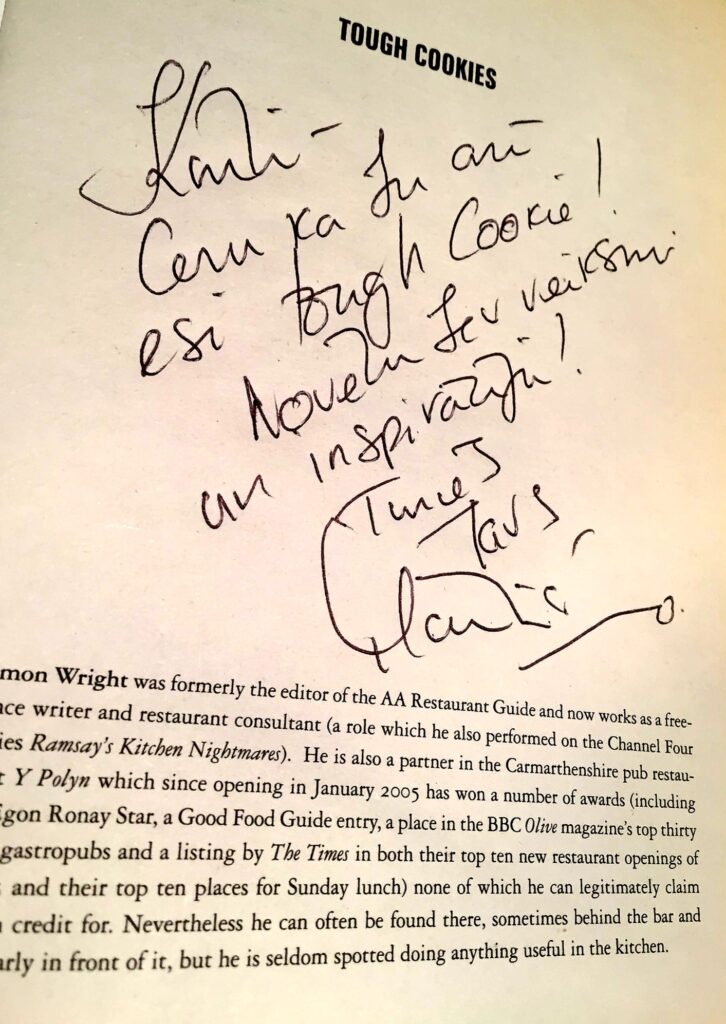 TOUGH COOKIES
Ceru ka Tu arī
esi tough Cookie!
Novēlu Tev veiksmi
un inspirāziju!
Tavs
mon Wright was formerly the editor of the AA Restaurant Guide and now works as a free-
ce writer and restaurant consultant (a role which he also performed on the Channel Four
ies Ramsay's Kitchen Nightmares). He is also a partner in the Carmarthenshire pub restau-
t Y Polyn which since opening in January 2005 has won a number of awards (including
gon Ronay Star, a Good Food Guide entry, a place in the BBC Olive magazine's top thirty
gastropubs and a listing by The Times in both their top ten new restaurant openings of
and their top ten places for Sunday lunch) none of which he can legitimately claim
credit for. Nevertheless he can often be found there, sometimes behind the bar and
rly in front of it, but he is seldom spotted doing anything useful in the kitchen.